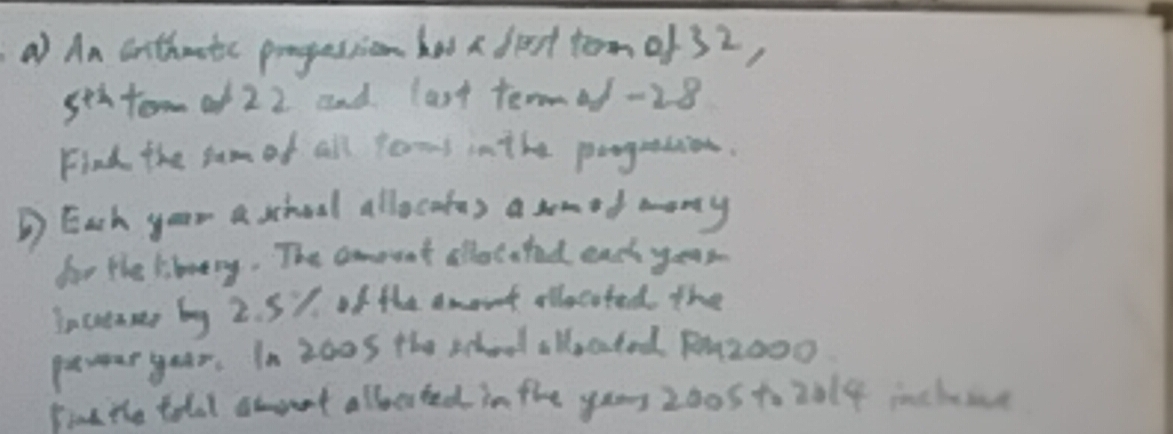 a) An arithmetic progression has a first term of 32,
5th term of 22 and last term of -28
Find the sum of all terms in the progression.
b) Each year a school allocates a sum of money
for the library. The amount allocated each year
increases by 2.5% of the amount allocated the
year. In 2005 the school allocated RM2000.
Find the total amount allocated in the years 2005 to 2014 inclusive